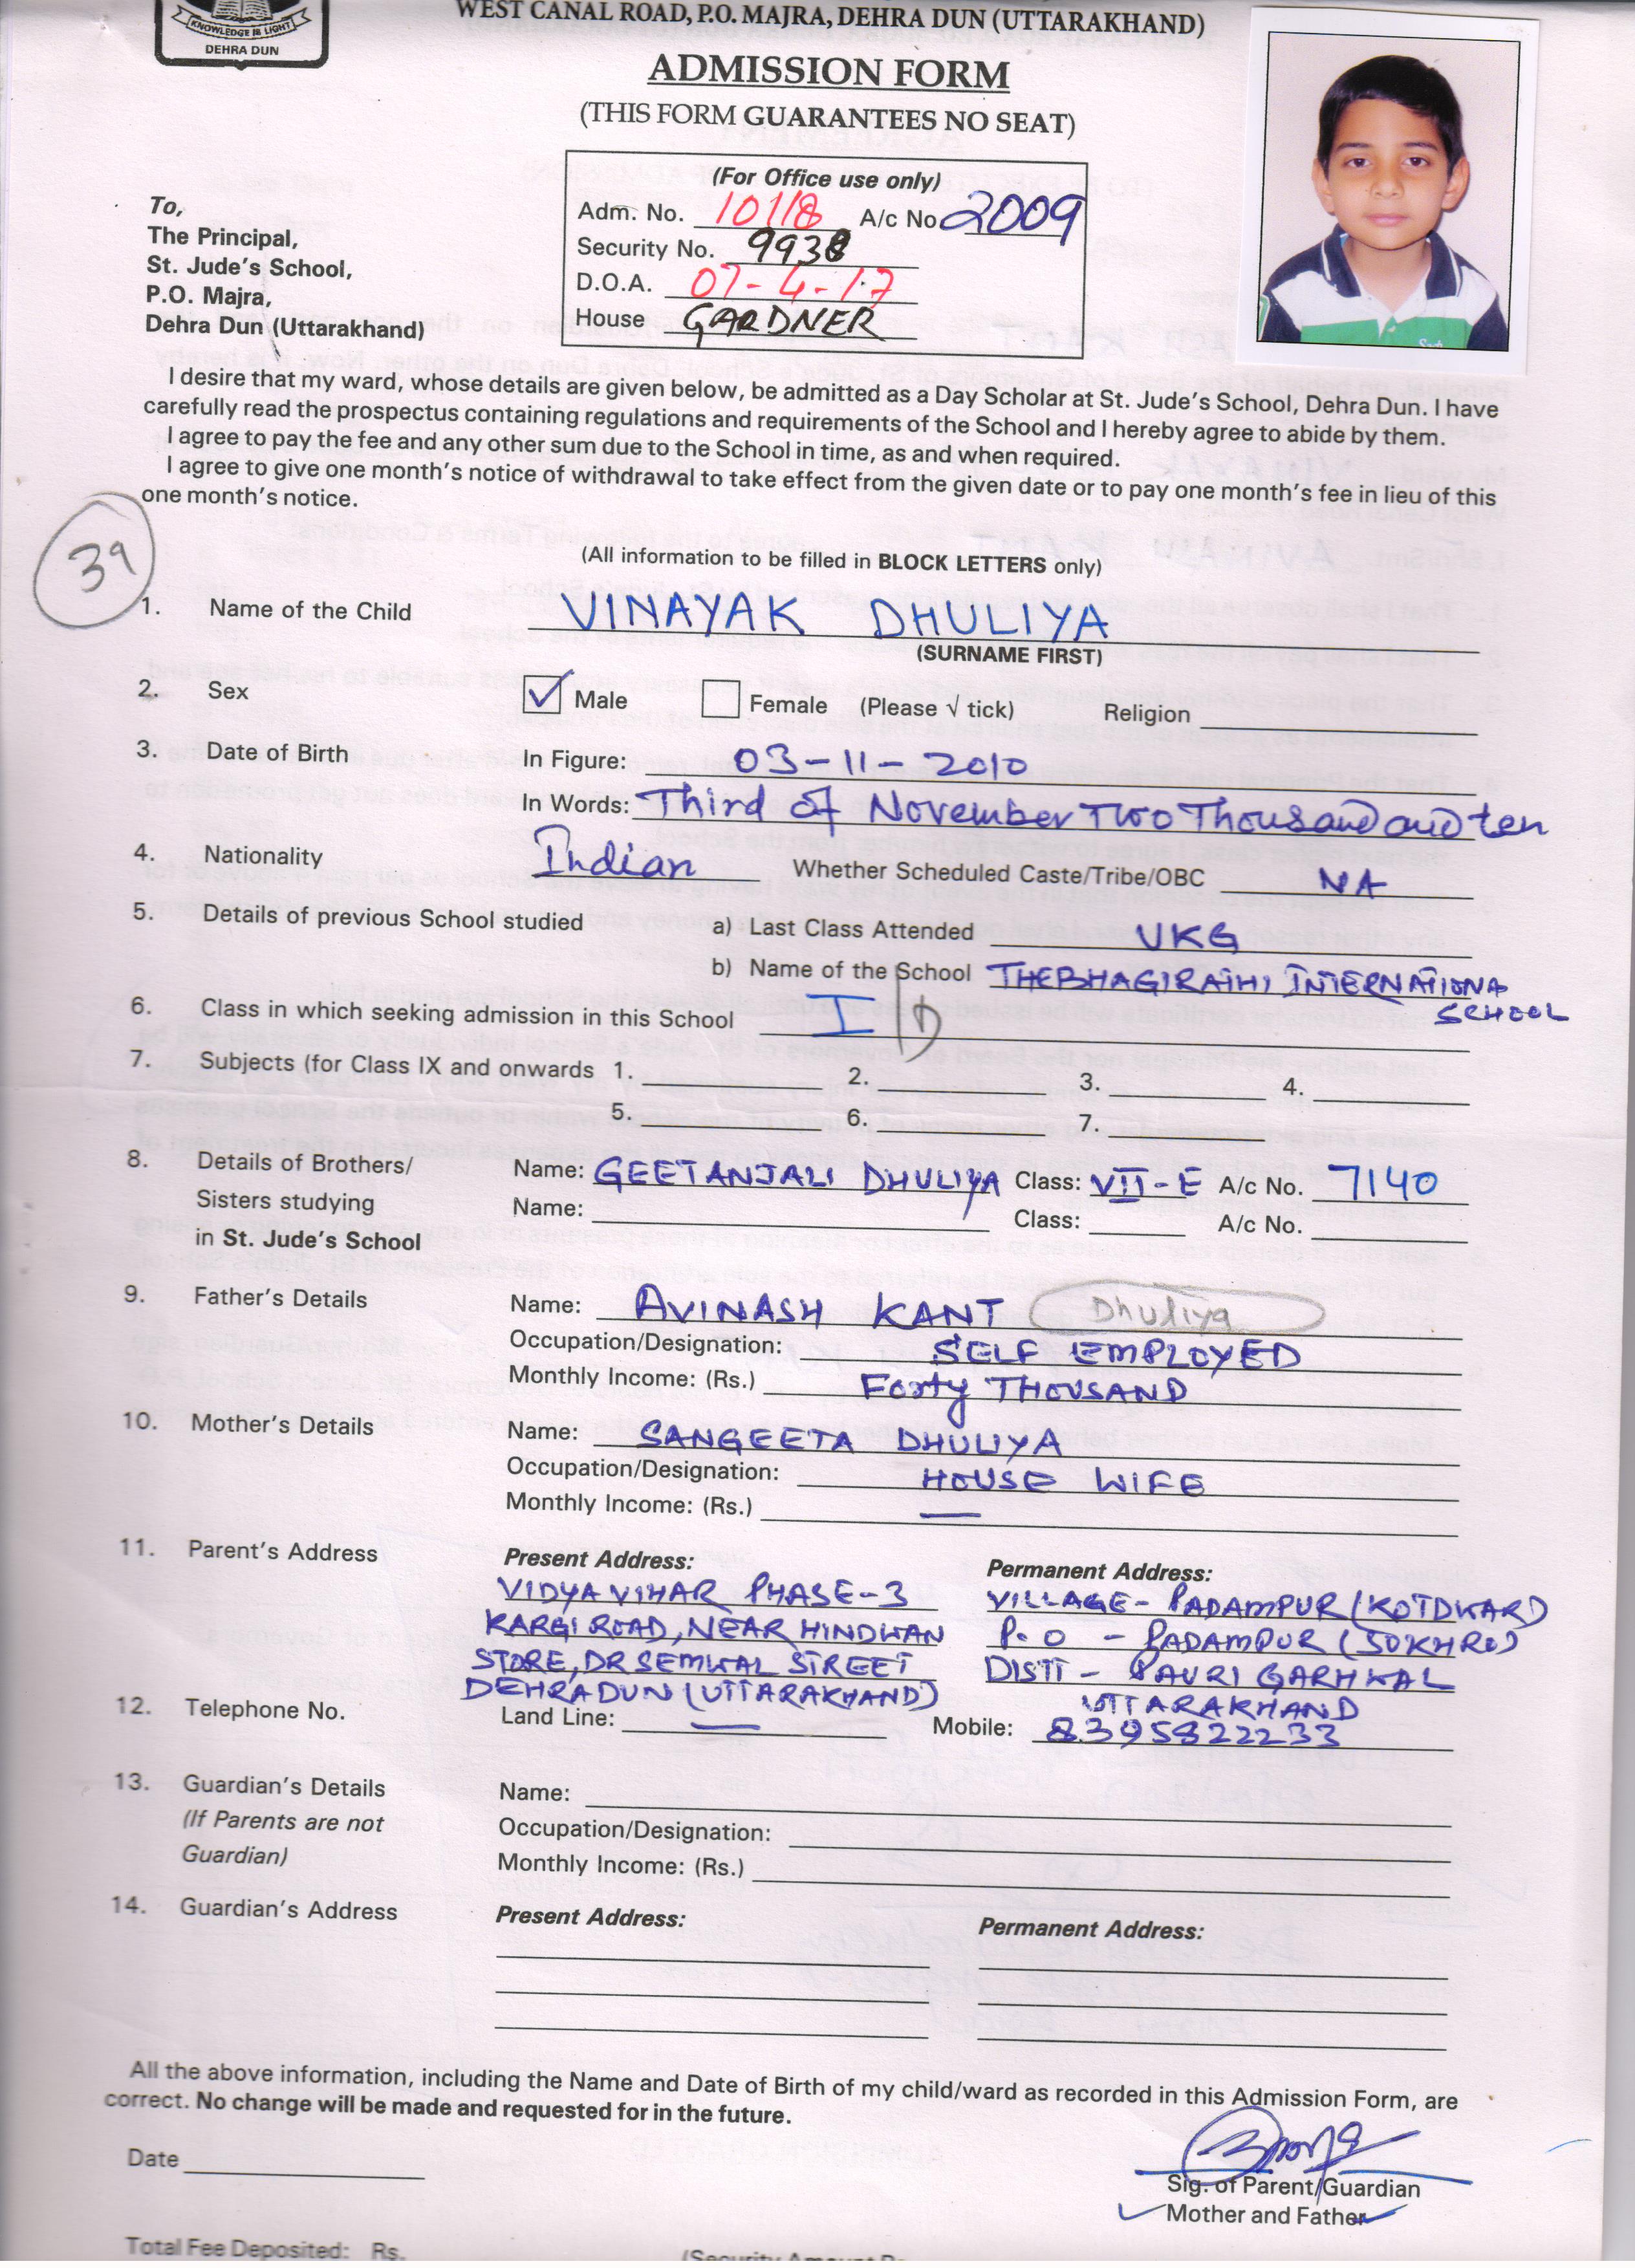 KNOWLEDGE IS LIGHT
DEHRA DUN
WEST CANAL ROAD, P.O. MAJRA, DEHRA DUN (UTTARAKHAND)
ADMISSION FORM
(THIS FORM GUARANTEES NO SEAT)
(For Office use only)
Adm. No. 10118 A/c No 2009
Security No. 9938
D.O.A. 07-4-17
House GARDNER
To,
The Principal,
St. Jude's School,
P.O. Majra,
Dehra Dun (Uttarakhand)
I desire that my ward, whose details are given below, be admitted as a Day Scholar at St. Jude's School, Dehra Dun. I have
carefully read the prospectus containing regulations and requirements of the School and I hereby agree to abide by them.
I agree to pay the fee and any other sum due to the School in time, as and when required.
I agree to give one month's notice of withdrawal to take effect from the given date or to pay one month's fee in lieu of this
one month's notice.
39
(All information to be filled in BLOCK LETTERS only)
1. Name of the Child VINAYAK DHULIYA
(SURNAME FIRST)
2. Sex Male Female (Please √ tick) Religion
3. Date of Birth In Figure: 03-11-2010
In Words: Third of November Two Thousand and ten
4. Nationality Indian Whether Scheduled Caste/Tribe/OBC NA
5. Details of previous School studied a) Last Class Attended UKG
b) Name of the School THEBHAGIRATHI INTERNATIONA
SCHOOL
6. Class in which seeking admission in this School I D
7. Subjects (for Class IX and onwards 1. 2. 3. 4.
5. 6. 7.
8. Details of Brothers/ Name: GEETANJALI DHULIYA Class: VII-E A/c No. 7140
Sisters studying Name: Class: A/c No.
in St. Jude's School
9. Father's Details Name: AVINASH KANT Dhuliya
Occupation/Designation: SELF EMPLOYED
Monthly Income: (Rs.) Forty THOUSAND
10. Mother's Details Name: SANGEETA DHULIYA
Occupation/Designation: HOUSE WIFE
Monthly Income: (Rs.) —
11. Parent's Address Present Address: Permanent Address:
VIDYA VIHAR PHASE-3 VILLAGE- PADAMPUR (KOTDWAR)
KARGI ROAD, NEAR HINDWAN P.O - PADAMPUR (SUKHRO)
STORE, DR SEMWAL STREET DISTT- PAURI GARHWAL
DEHRADUN (UTTARAKHAND) UTTARAKHAND
12. Telephone No. Land Line: — Mobile: 8395822233
13. Guardian's Details Name:
(If Parents are not Occupation/Designation:
Guardian) Monthly Income: (Rs.)
14. Guardian's Address Present Address: Permanent Address:
All the above information, including the Name and Date of Birth of my child/ward as recorded in this Admission Form, are
correct. No change will be made and requested for in the future.
Date
Sig. of Parent/Guardian
Mother and Father
Total Fee Deposited: Rs.